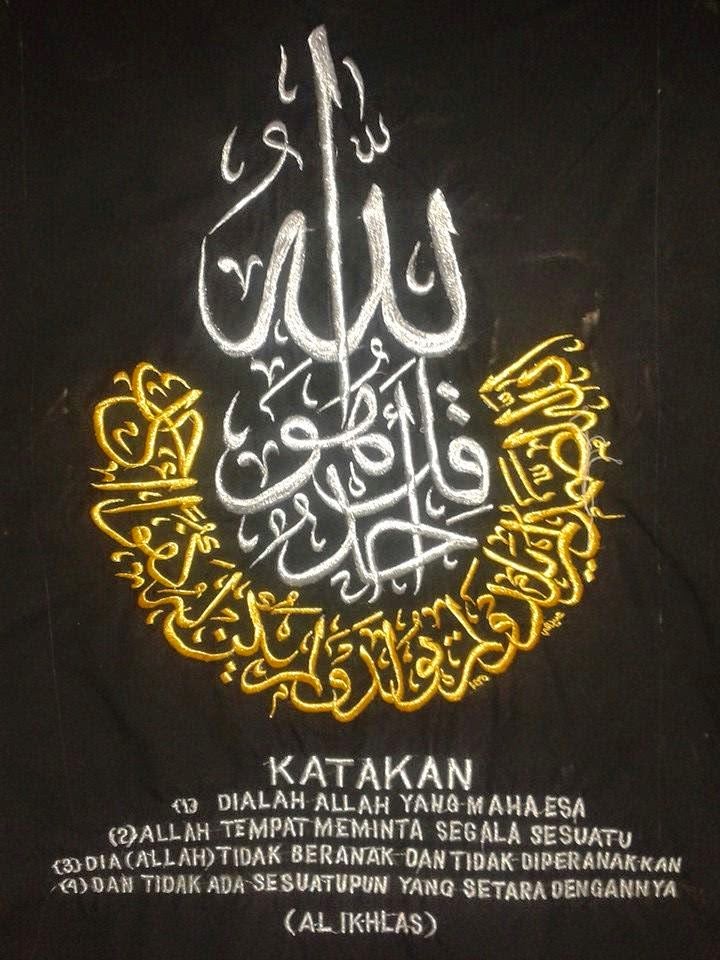 قل هو الله أحد
الله الصمد لم يلد ولم يولد ولم يكن له كفوا أحد
KATAKAN
(1) DIALAH ALLAH YANG MAHA ESA
(2) ALLAH TEMPAT MEMINTA SEGALA SESUATU
(3) DIA (ALLAH) TIDAK BERANAK DAN TIDAK DIPERANAKKAN
(4) DAN TIDAK ADA SESUATUPUN YANG SETARA DENGANNYA
(AL IKHLAS)